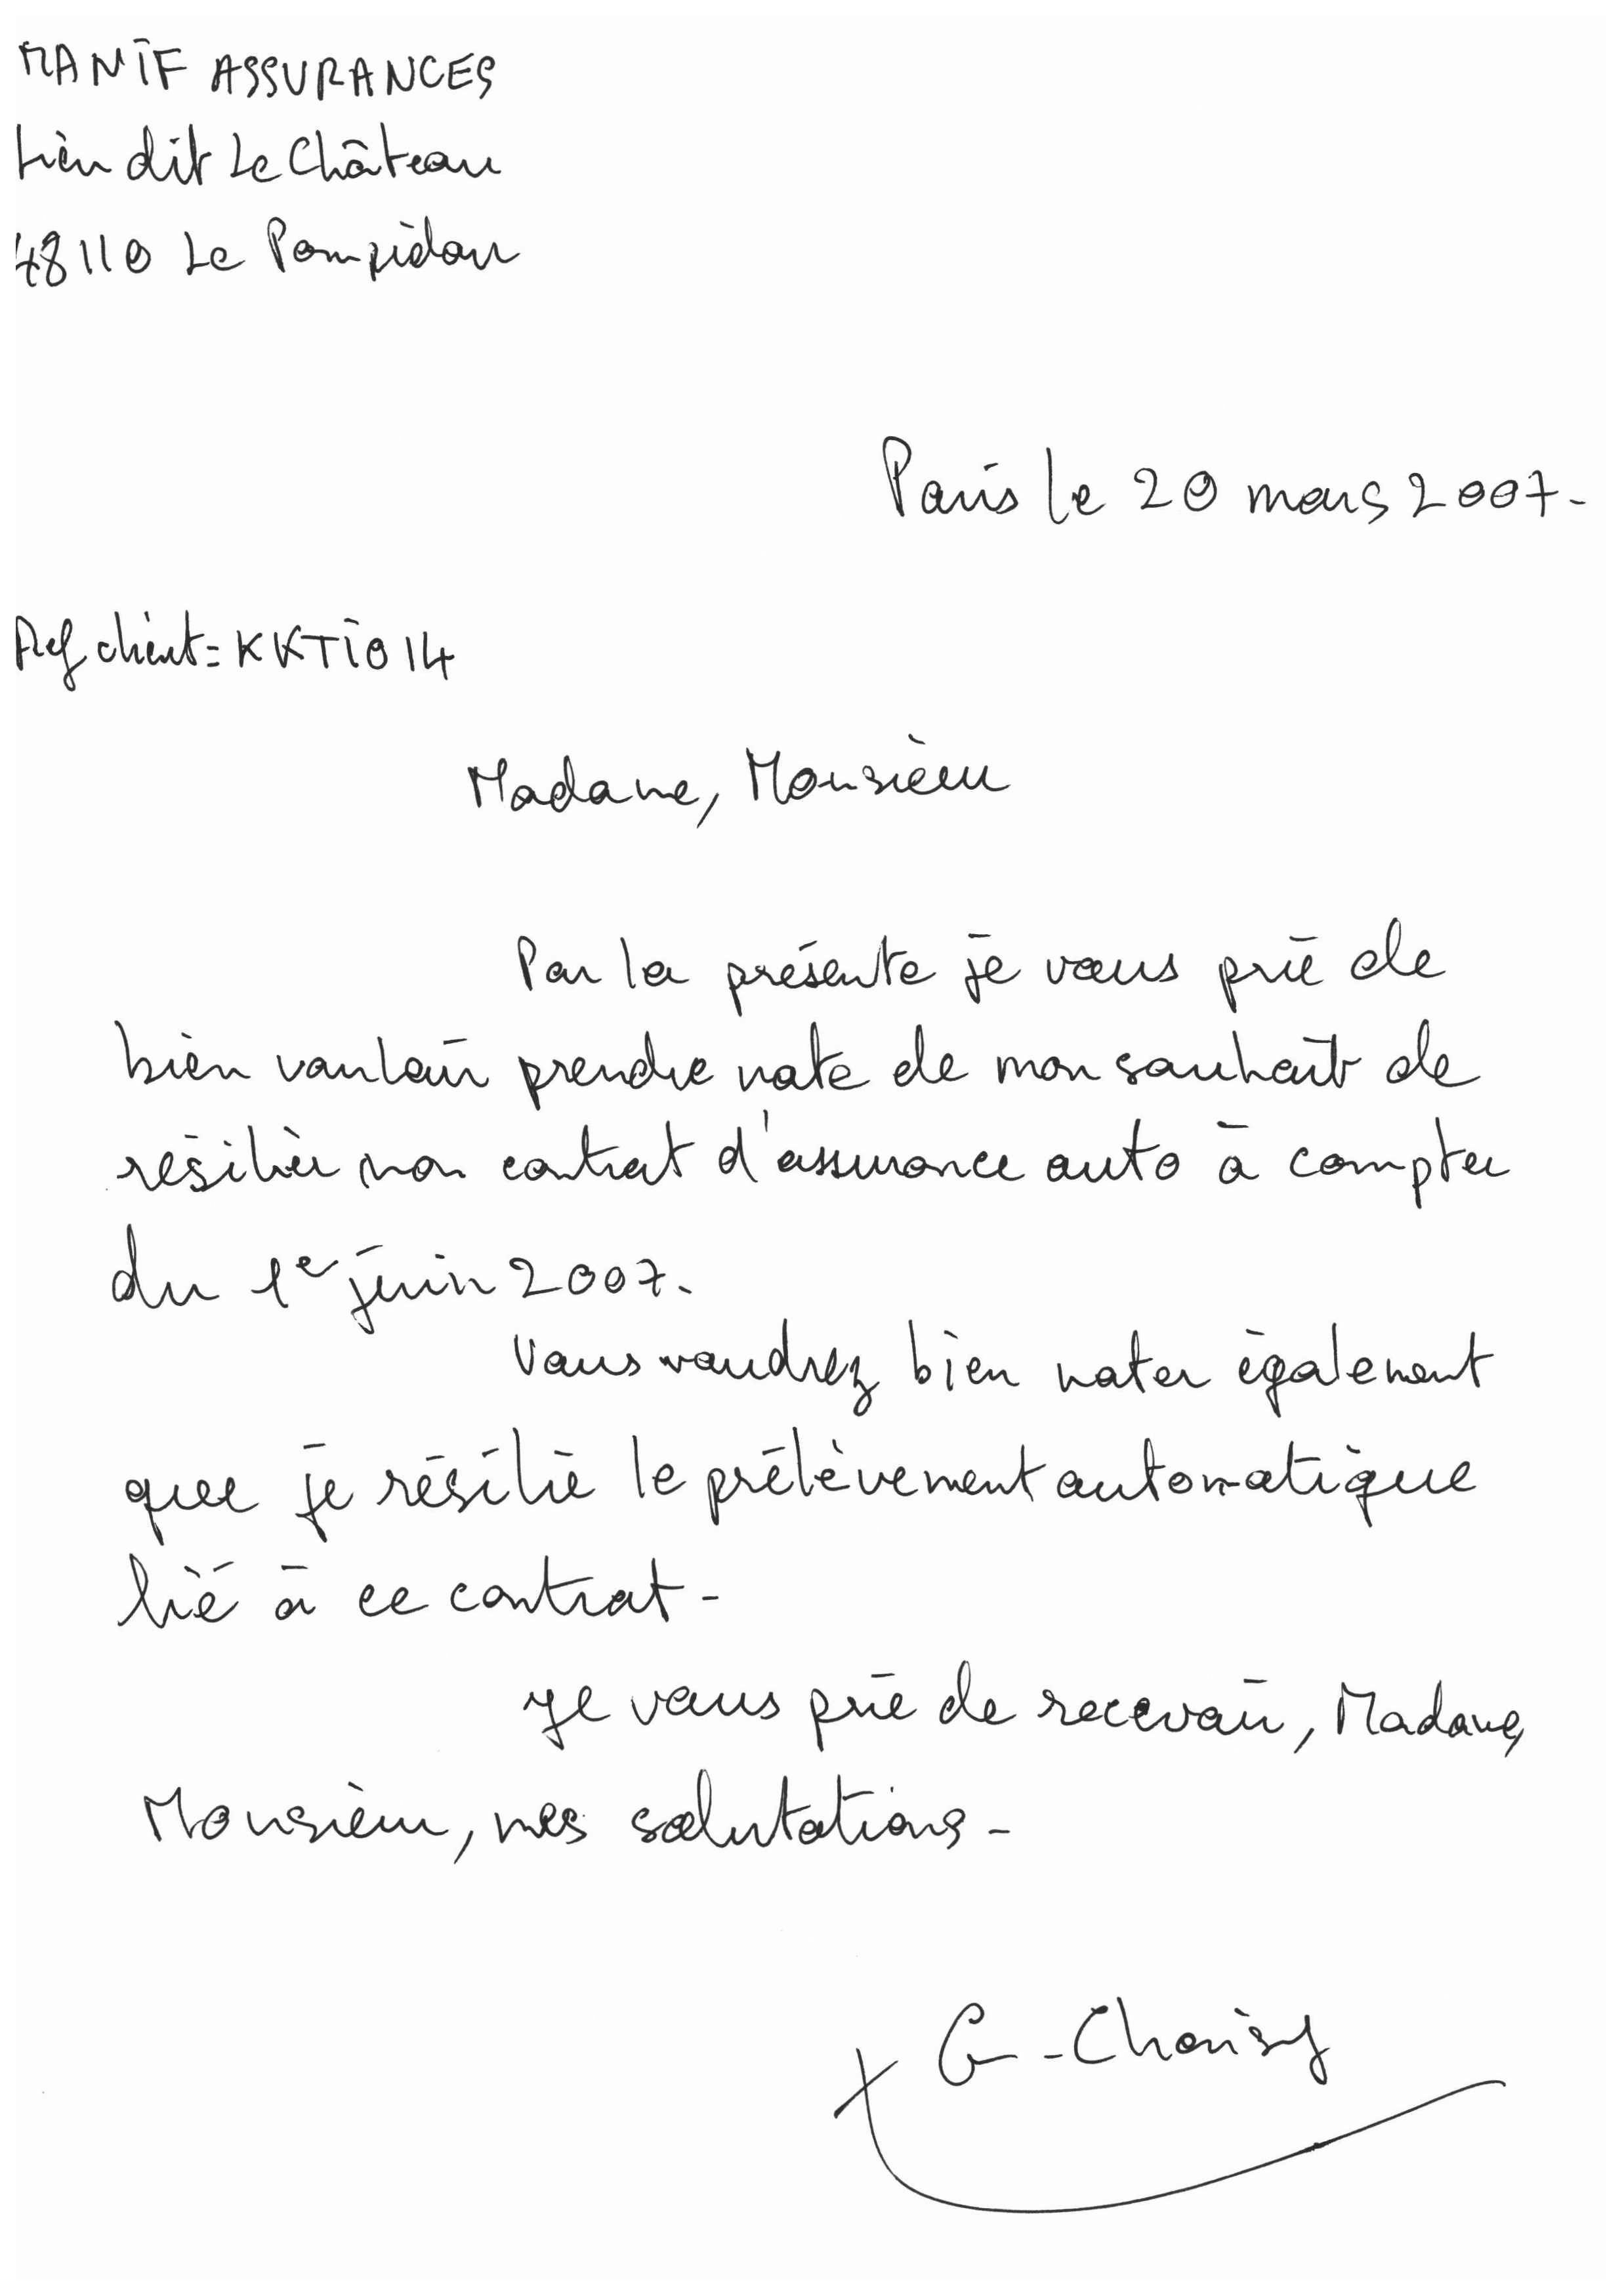 MANIF ASSURANCES
Lieu dit Le Château
48110 Le Pompidou
Paris le 20 mars 2007.
Ref client : KKTI014
Madame, Monsieur
Par la présente je vous prie de
bien vouloir prendre note de mon souhait de
résilier mon contrat d'assurance auto à compter
du 1e juin 2007.
Vous voudrez bien noter également
que je résilie le prélèvement automatique
lié à ce contrat.
Je vous prie de recevoir, Madame,
Monsieur, mes salutations.